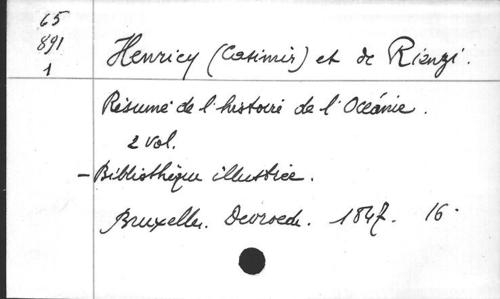 65
891
1
Henricy (Casimir) et de Rienzi.
Résumé de l'histoire de l'Océanie.
2 vol.
- Bibliothèque illustrée.
Bruxelles. Devroede. 1847. 16°